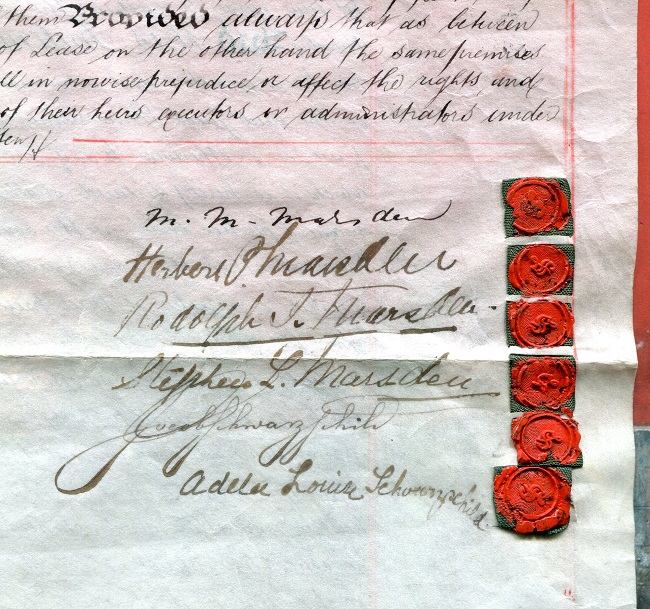 them Provided always that as between
of Lease on the other hand the same premises
ll in nowise prejudice or affect the rights and
of their heirs executors or administrators under
M. M. Marsden
Herbert Marsden
Rodolph T. Marsden
Stephen L. Marsden
Jacob Schwarzschild
Adela Louisa Schwarzschild